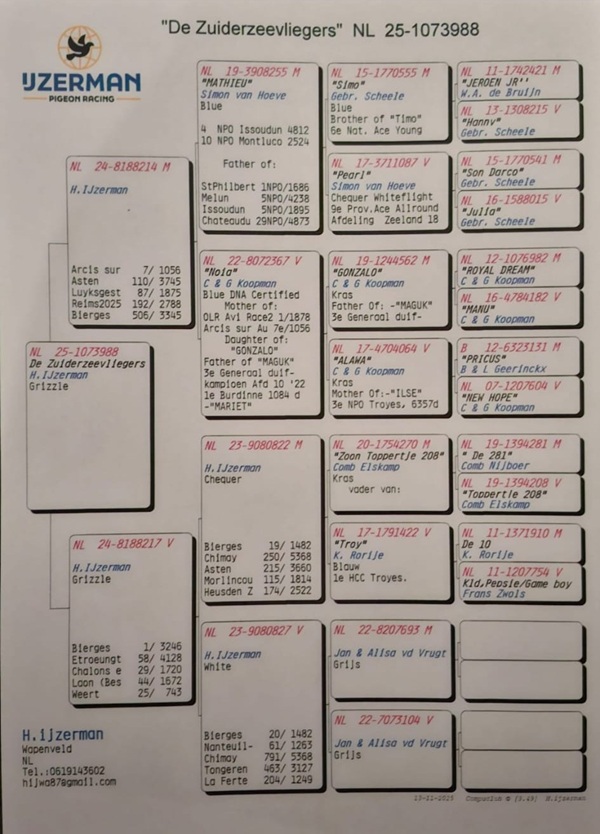 "De Zuiderzeevliegers" NL 25-1073988
IJZERMAN
PIGEON RACING
NL 25-1073988
De Zuiderzeevliegers
H.IJzerman
Grizzle
NL 24-8188214 M
H.IJzerman
Arcis sur 7/ 1056
Asten 110/ 3745
Luyksgest 87/ 1875
Reims2025 192/ 2788
Bierges 506/ 3345
NL 24-8188217 V
H.IJzerman
Grizzle
Bierges 1/ 3246
Etroeungt 58/ 4128
Chalons e 29/ 1720
Laon (Bes 44/ 1672
Weert 25/ 743
NL 19-3908255 M
"MATHIEU"
Simon van Hoeve
Blue
4 NPO Issoudun 4812
10 NPO Montluco 2524
Father of:
StPhilbert 1NPO/1686
Melun 5NPO/4238
Issoudun 5NPO/1895
Chateaudu 29NPO/4873
NL 22-8072367 V
"Noia"
C & G Koopman
Blue DNA Certified
Mother of:
OLR Avi Race2 1/1878
Arcis sur Au 7e/1056
Daughter of:
"GONZALO"
Father of "MAGUK"
3e Generaal duif-
kampioen Afd 10 '22
1e Burdinne 1084 d
-"MARIET"
NL 23-9080822 M
H.IJzerman
Chequer
Bierges 19/ 1482
Chimay 250/ 5368
Asten 215/ 3660
Morlincou 115/ 1814
Heusden Z 174/ 2522
NL 23-9080827 V
H.IJzerman
White
Bierges 20/ 1482
Nanteuil- 61/ 1263
Chimay 791/ 5368
Tongeren 463/ 3127
La Ferte 204/ 1249
NL 15-1770555 M
"Simo"
Gebr. Scheele
Blue
Brother of "Timo"
6e Nat. Ace Young
NL 17-3711087 V
"Pearl"
Simon van Hoeve
Chequer Whiteflight
9e Prov.Ace Allround
Afdeling Zeeland 18
NL 19-1244562 M
"GONZALO"
C & G Koopman
Kras
Father Of: -"MAGUK"
3e Generaal duif-
NL 17-4704064 V
"ALAWA"
C & G Koopman
Kras
Mother Of:-"ILSE"
3e NPO Troyes, 6357d
NL 20-1754270 M
"Zoon Toppertje 208"
Comb Elskamp
Kras
vader van:
NL 17-1791422 V
"Troy"
K. Rorije
Blauw
1e HCC Troyes.
NL 22-8207693 M
Jan & Alisa vd Vrugt
Grijs
NL 22-7073104 V
Jan & Alisa vd Vrugt
Grijs
NL 11-1742421 M
"JEROEN JR''
W.A. de Bruijn
NL 13-1308215 V
"Hanny"
Gebr. Scheele
NL 15-1770541 M
"Son Darco"
Gebr. Scheele
NL 16-1588015 V
"Julia"
Gebr. Scheele
NL 12-1076982 M
"ROYAL DREAM"
C & G Koopman
NL 16-4784182 V
"MANU"
C & G Koopman
B 12-6323131 M
"PRICUS"
B & L Geerinckx
NL 07-1207604 V
"NEW HOPE"
C & G Koopman
NL 19-1394281 M
" De 281"
Comb Nijboer
NL 19-1394208 V
"Toppertje 208"
Comb Elskamp
NL 11-1371910 M
De 10
K. Rorije
NL 11-1207754 V
Kld,Pepsie/Game boy
Frans Zwols
H.ijzerman
Wapenveld
NL
Tel.:0619143602
hijwa87@gmail.com
13-11-2025 Compuclub © [9.49] H.ijzerman